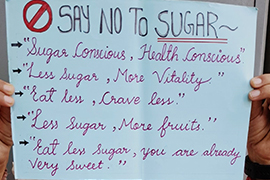 SAY NO TO SUGAR~
"Sugar Conscious, Health Conscious"
"Less Sugar, More Vitality."
"Eat less, Crave less."
"Less Sugar, More fruits."
"Eat less Sugar, you are already
Very Sweet."